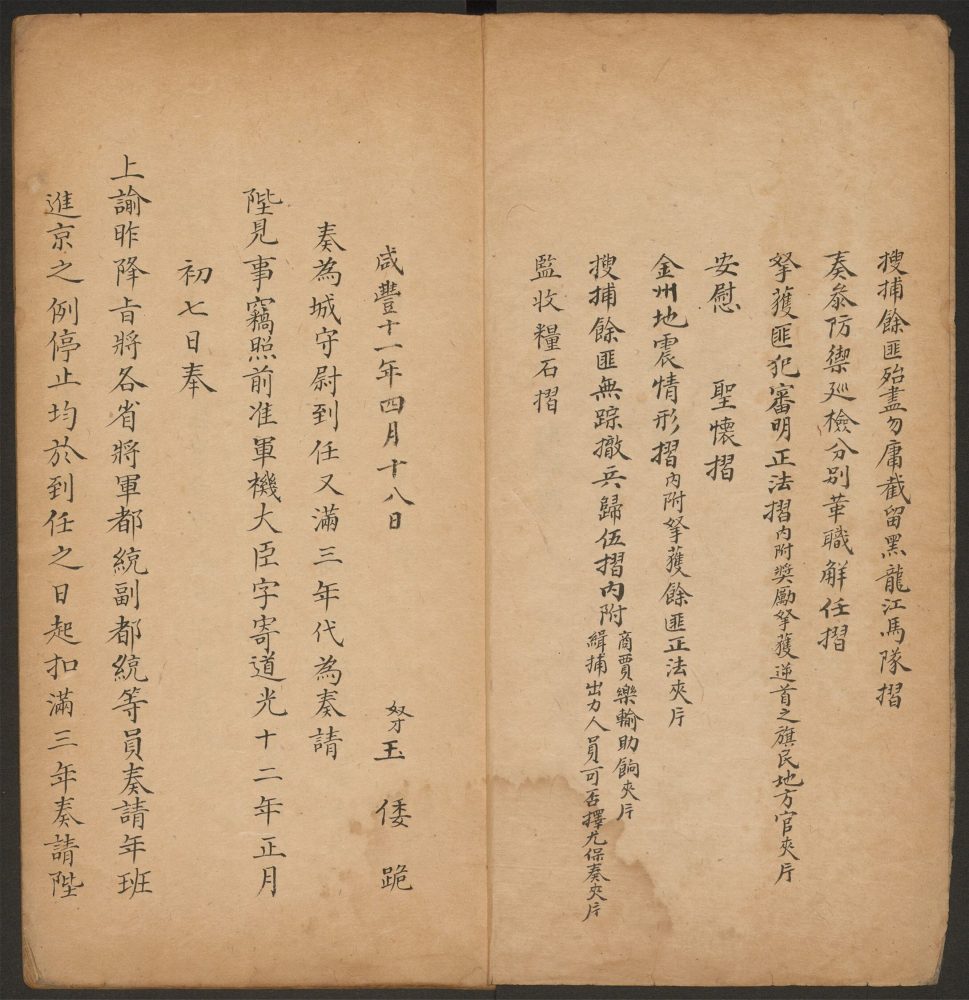 搜捕餘匪殆盡勿庸截留黑龍江馬隊摺
奏叅防禦巡檢分別革職解任摺
拏獲匪犯審明正法摺內附獎勵拏獲逆首之旗民地方官夾片
安慰 聖懷摺
金州地震情形摺內附拏獲餘匪正法夾片
搜捕餘匪無踪撤兵歸伍摺內附
商賈樂輸助餉夾片
緝捕出力人員可否擇尤保奏夾片
監收糧石摺
咸豐十一年四月十八日
奴才玉 倭 跪
奏為城守尉到任又滿三年代為奏請
陛見事竊照前准軍機大臣字寄道光十二年正月
初七日奉
上諭昨降旨將各省將軍都統副都統等員奏請年班
進京之例停止均於到任之日起扣滿三年奏請陛